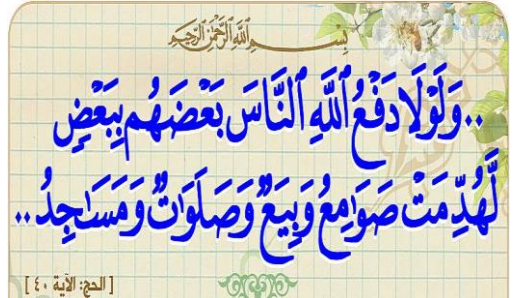 بِسْمِ ٱللَّهِ ٱلرَّحْمَٰنِ ٱلرَّحِيمِ
..وَلَوْلَا دَفْعُ ٱللَّهِ ٱلنَّاسَ بَعْضَهُم بِبَعْضٍ
لَّهُدِّمَتْ صَوَٰمِعُ وَبِيَعٌ وَصَلَوَٰتٌ وَمَسَٰجِدُ..
[الحج: الآية ٤٠]